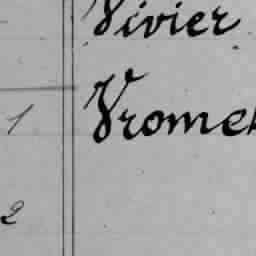 Vivier
1 Vrome
2